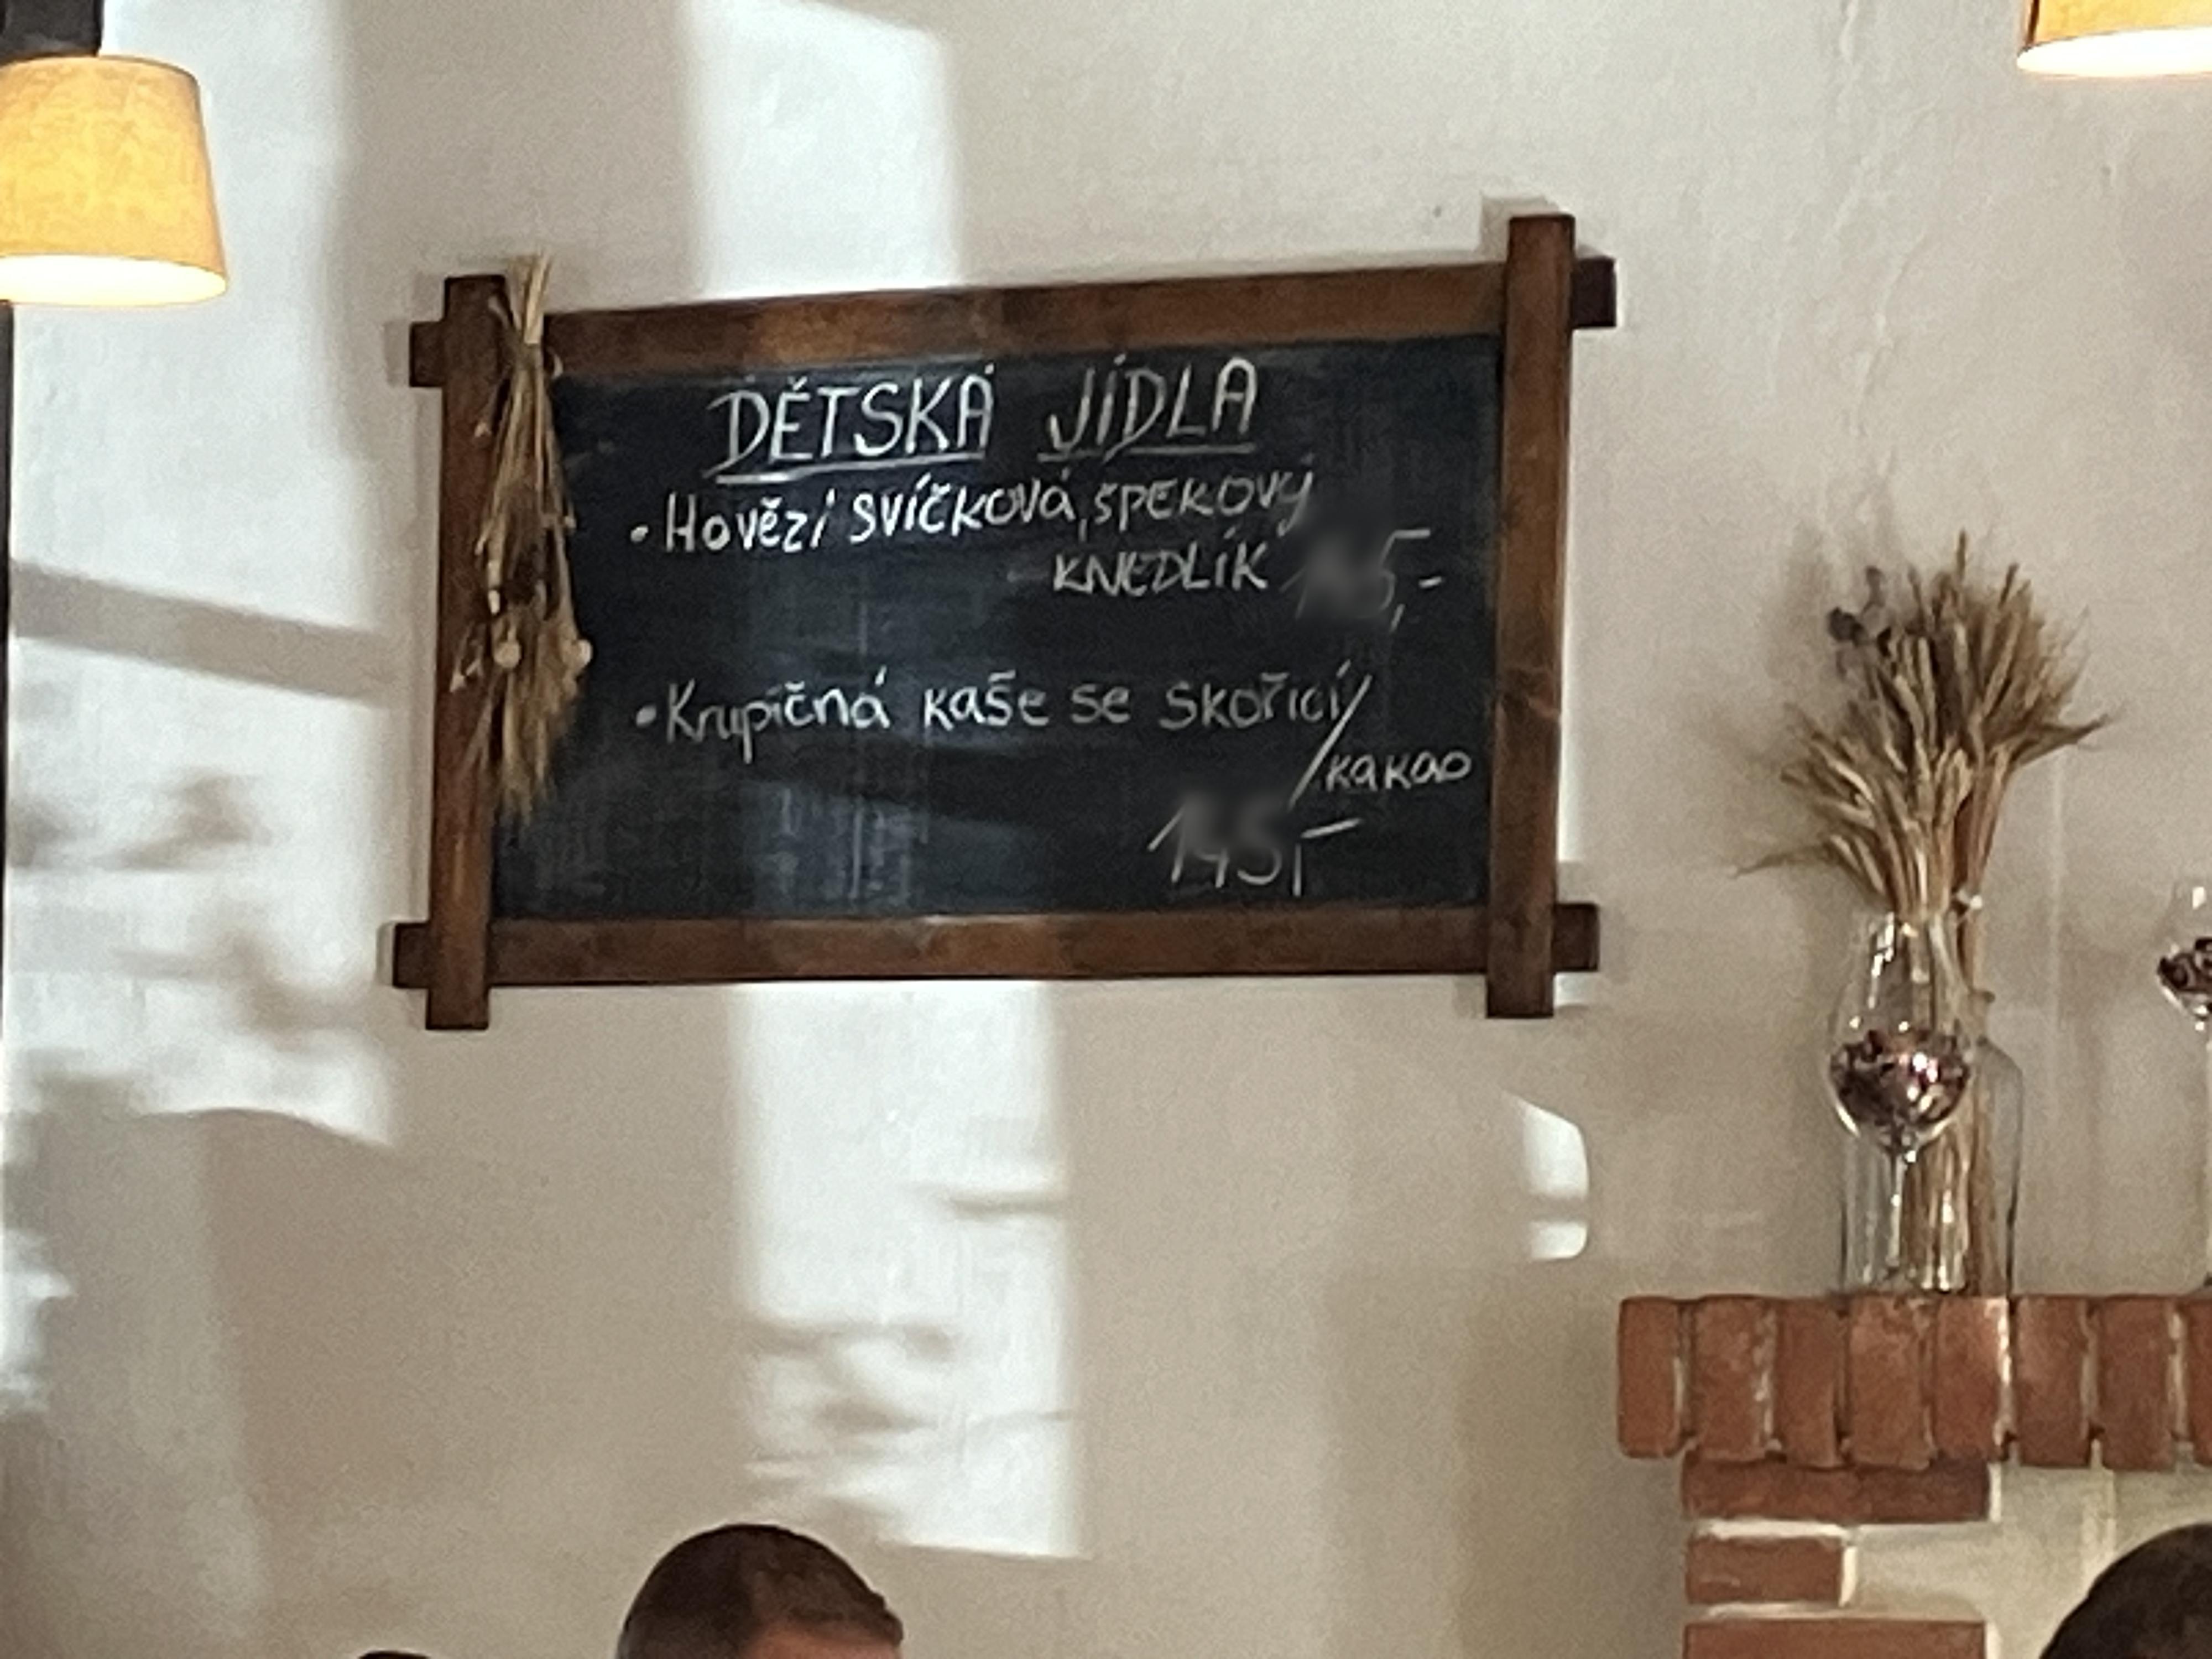 DĚTSKÁ JÍDLA
• Hovězí svíčková, špekový
knedlík
• Krupičná kaše se skořicí/
/kakao